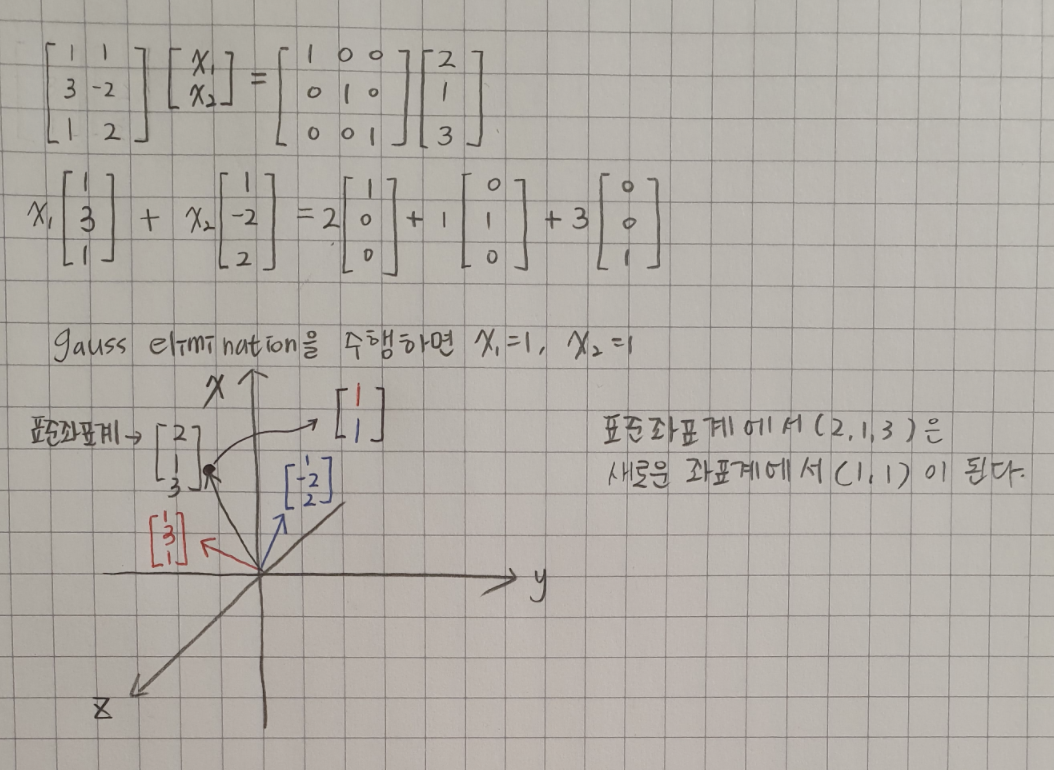 [1 1; 3 -2; 1 2] [x₁; x₂] = [1 0 0; 0 1 0; 0 0 1] [2; 1; 3]
x₁ [1; 3; 1] + x₂ [1; -2; 2] = 2 [1; 0; 0] + 1 [0; 1; 0] + 3 [0; 0; 1]
gauss elimination을 수행하면 x₁=1, x₂=1
x
[1; 1]
표준좌표계→ [2; 1; 3]
표준좌표계에서 (2,1,3)은
새로운 좌표계에서 (1,1)이 된다.
[1; -2; 2]
[1; 3; 1]
y
z